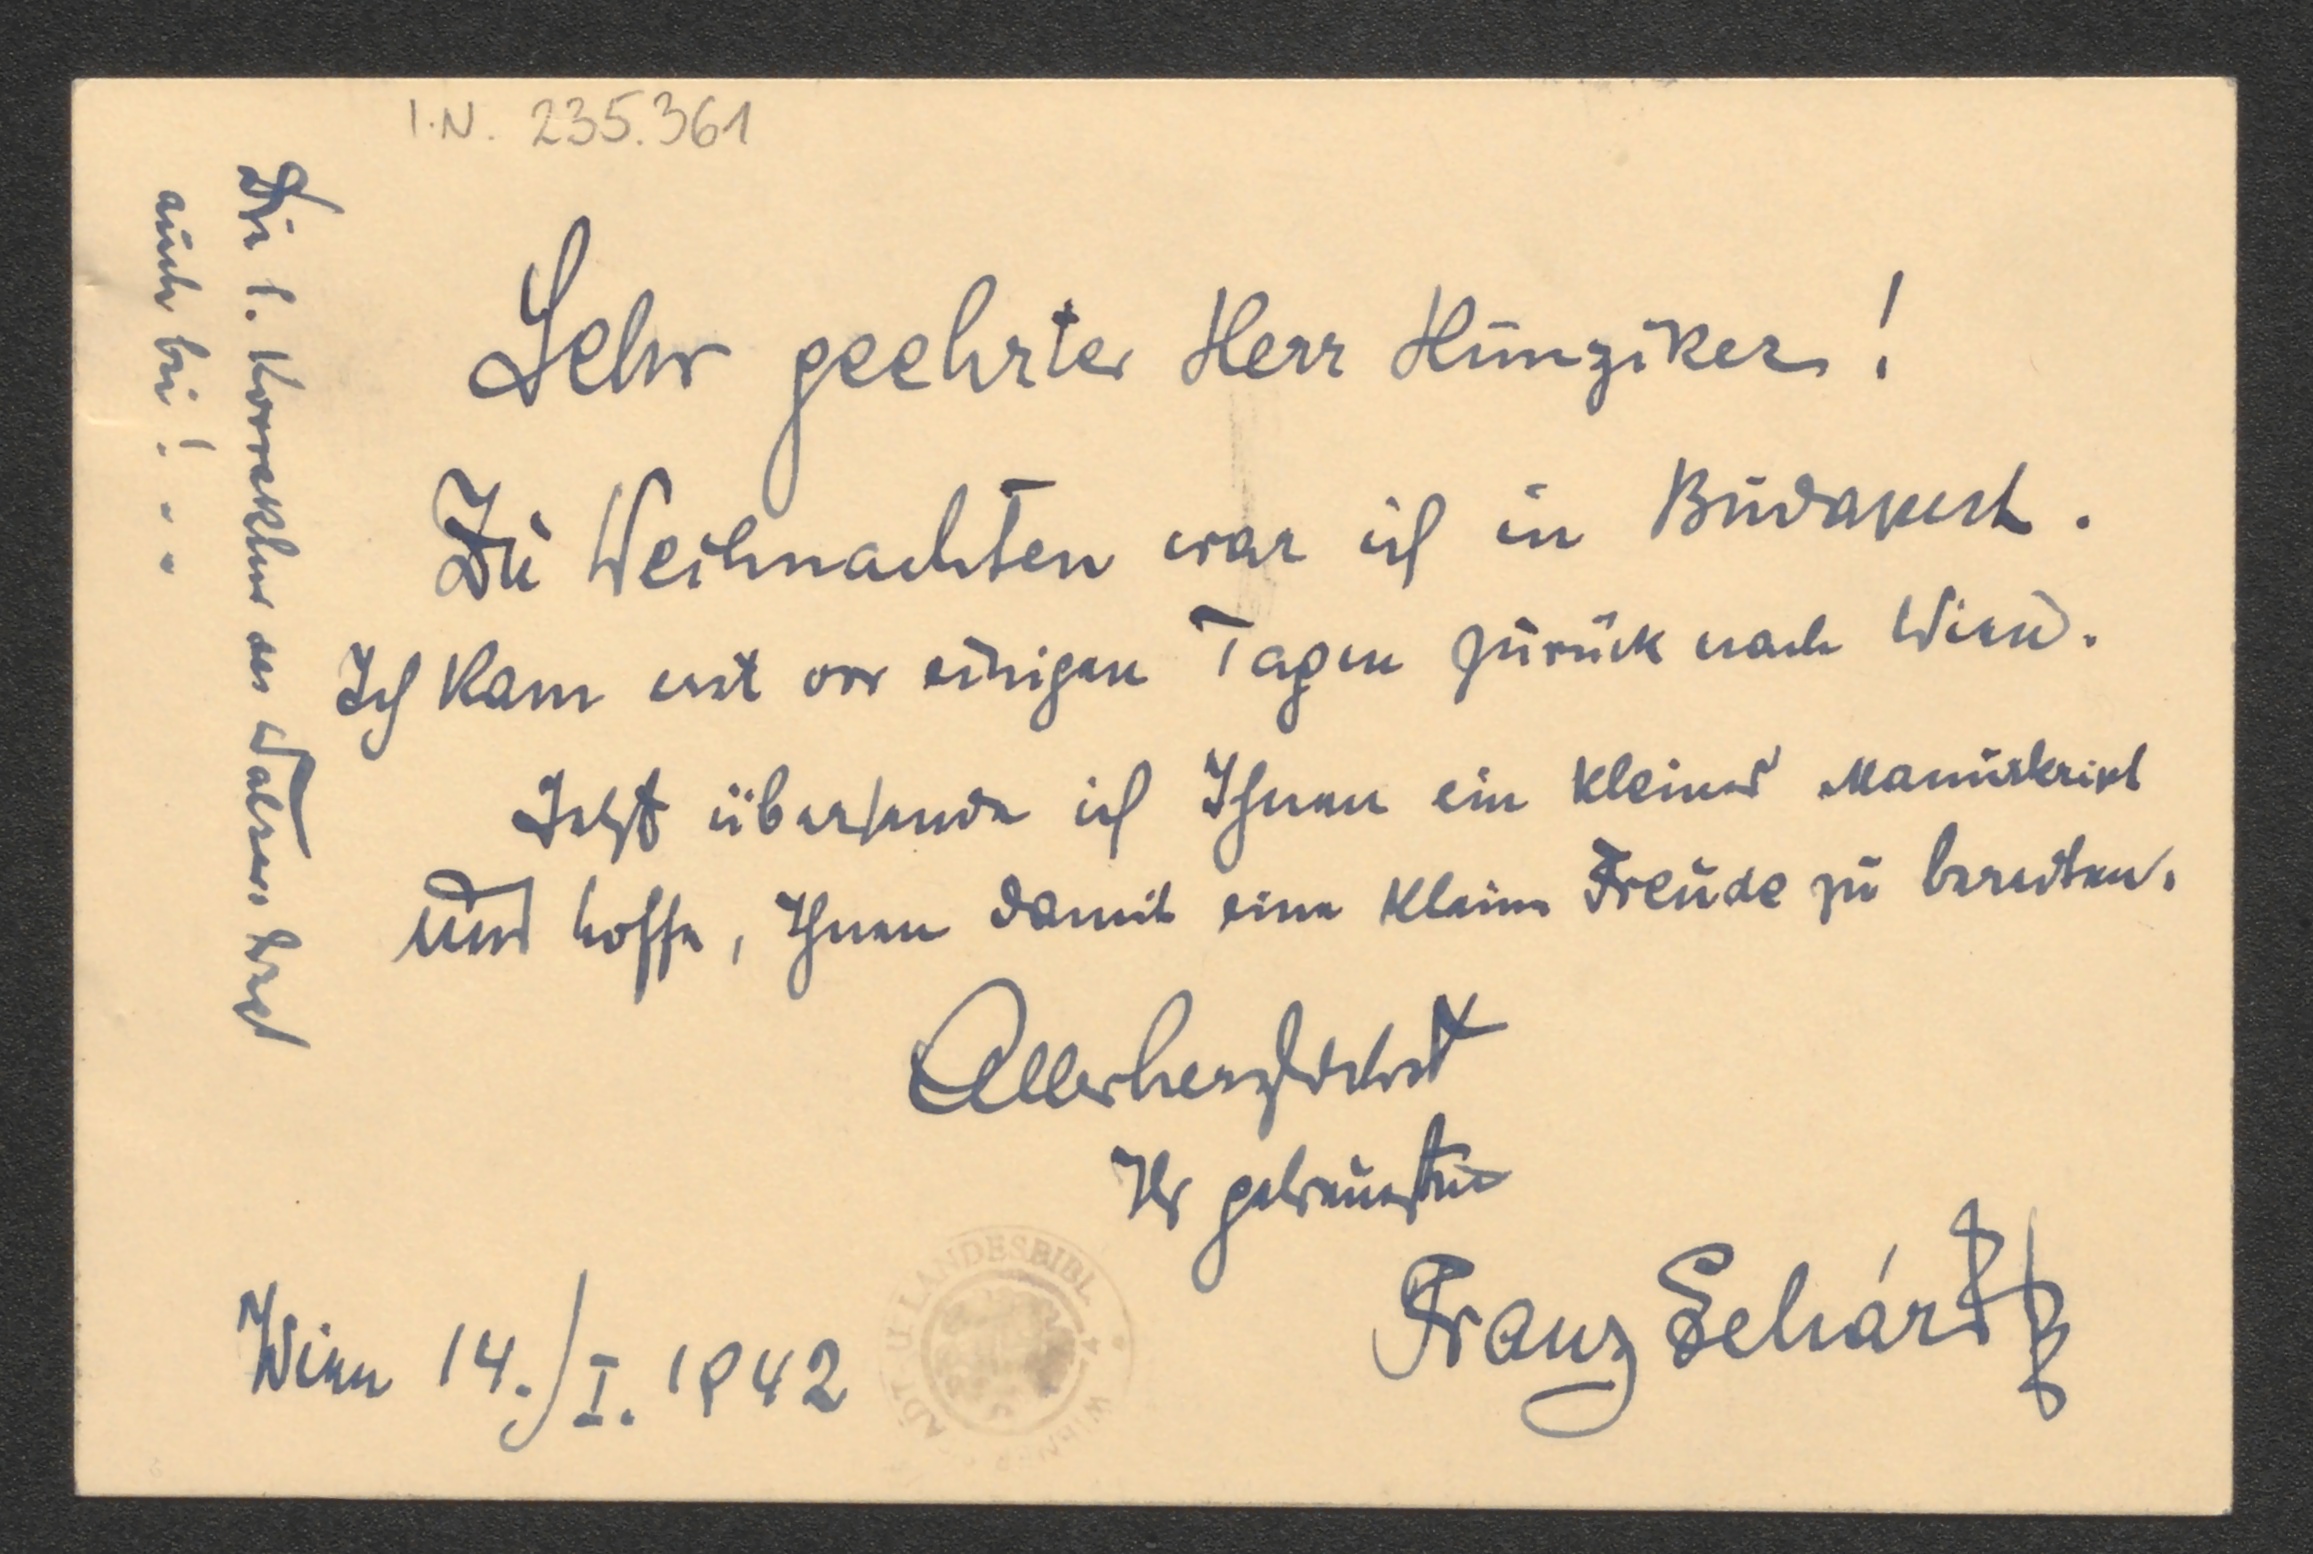 I.N. 235.361
Sehr geehrter Herr Hunziker!
Zu Weihnachten war ich in Budapest.
Ich kam erst vor einigen Tagen zurück nach Wien.
Jetzt übersende ich Ihnen ein kleines Manuskript
und hoffe, Ihnen damit eine kleine Freude zu bereiten.
Allerherzlichst
Ihr getreuester
Franz Lehár
Wien 14./I. 1942
Die I. Korrektur des Walzers liegt
auch bei!
U LANDESBIBL